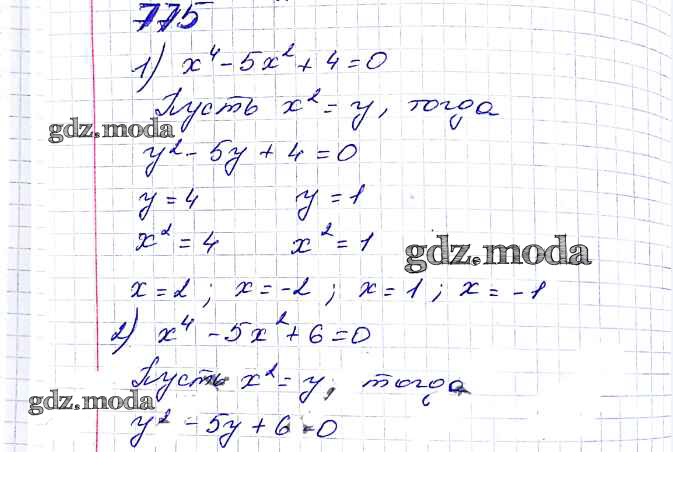 775
1) x⁴ - 5x² + 4 = 0
Пусть x² = y, тогда
gdz.moda
y² - 5y + 4 = 0
y = 4 y = 1
x² = 4 x² = 1
gdz.moda
x = 2 ; x = -2 ; x = 1 ; x = -1
2) x⁴ - 5x² + 6 = 0
Пусть x² = y, тогда
gdz.moda
y² - 5y + 6 = 0